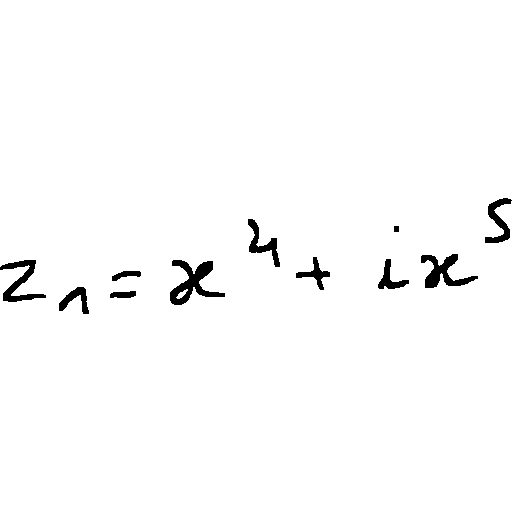 z₁ = x⁴ + ix⁵